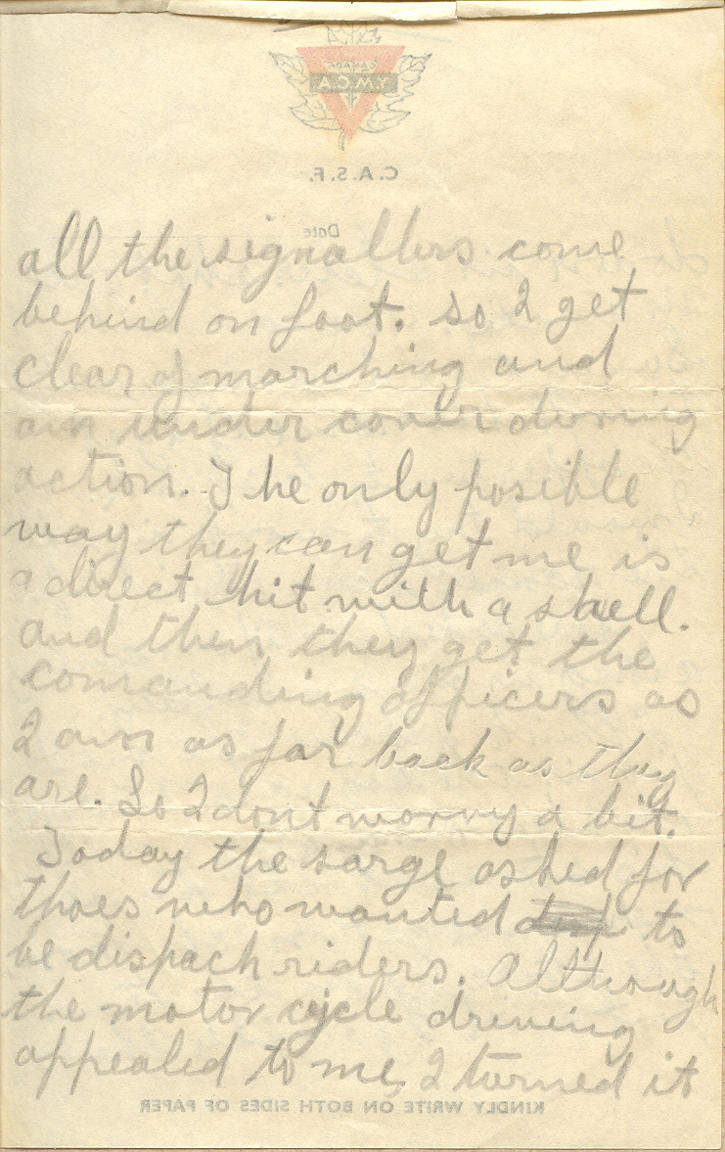 CANADA
Y.M.C.A
C.A.S.F.
Date
all the signallers come
behind on foot. So I get
clear of marching and
am under cover during
action. The only posible
way they can get me is
a direct hit with a shell.
and then they get the
comanding officers as
I am as far back as they
are. So I dont worry a bit.
Today the sarge asked for
thoes who wanted to
be dispach riders. Although
the motor cycle driving
appealed to me, I turned it
KINDLY WRITE ON BOTH SIDES OF PAPER